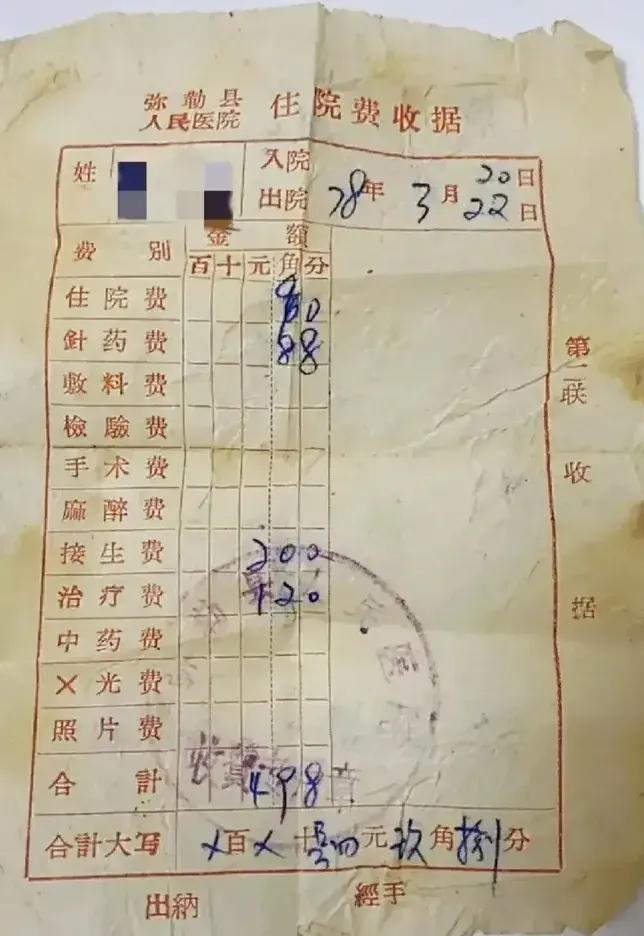 弥勒县
人民医院 住院费收据
姓
入院
出院 78年 3月 20日
22日
费别 金额
百 十 元 角 分
住院费 90
針药费 88
敷料费
檢驗费
手术费
麻醉费
接生费 200
治疗费 120
中药费
X光费
照片费
合計 498
合計大写 ×百×十 元玖角捌分
出納 經手
第二联 收据